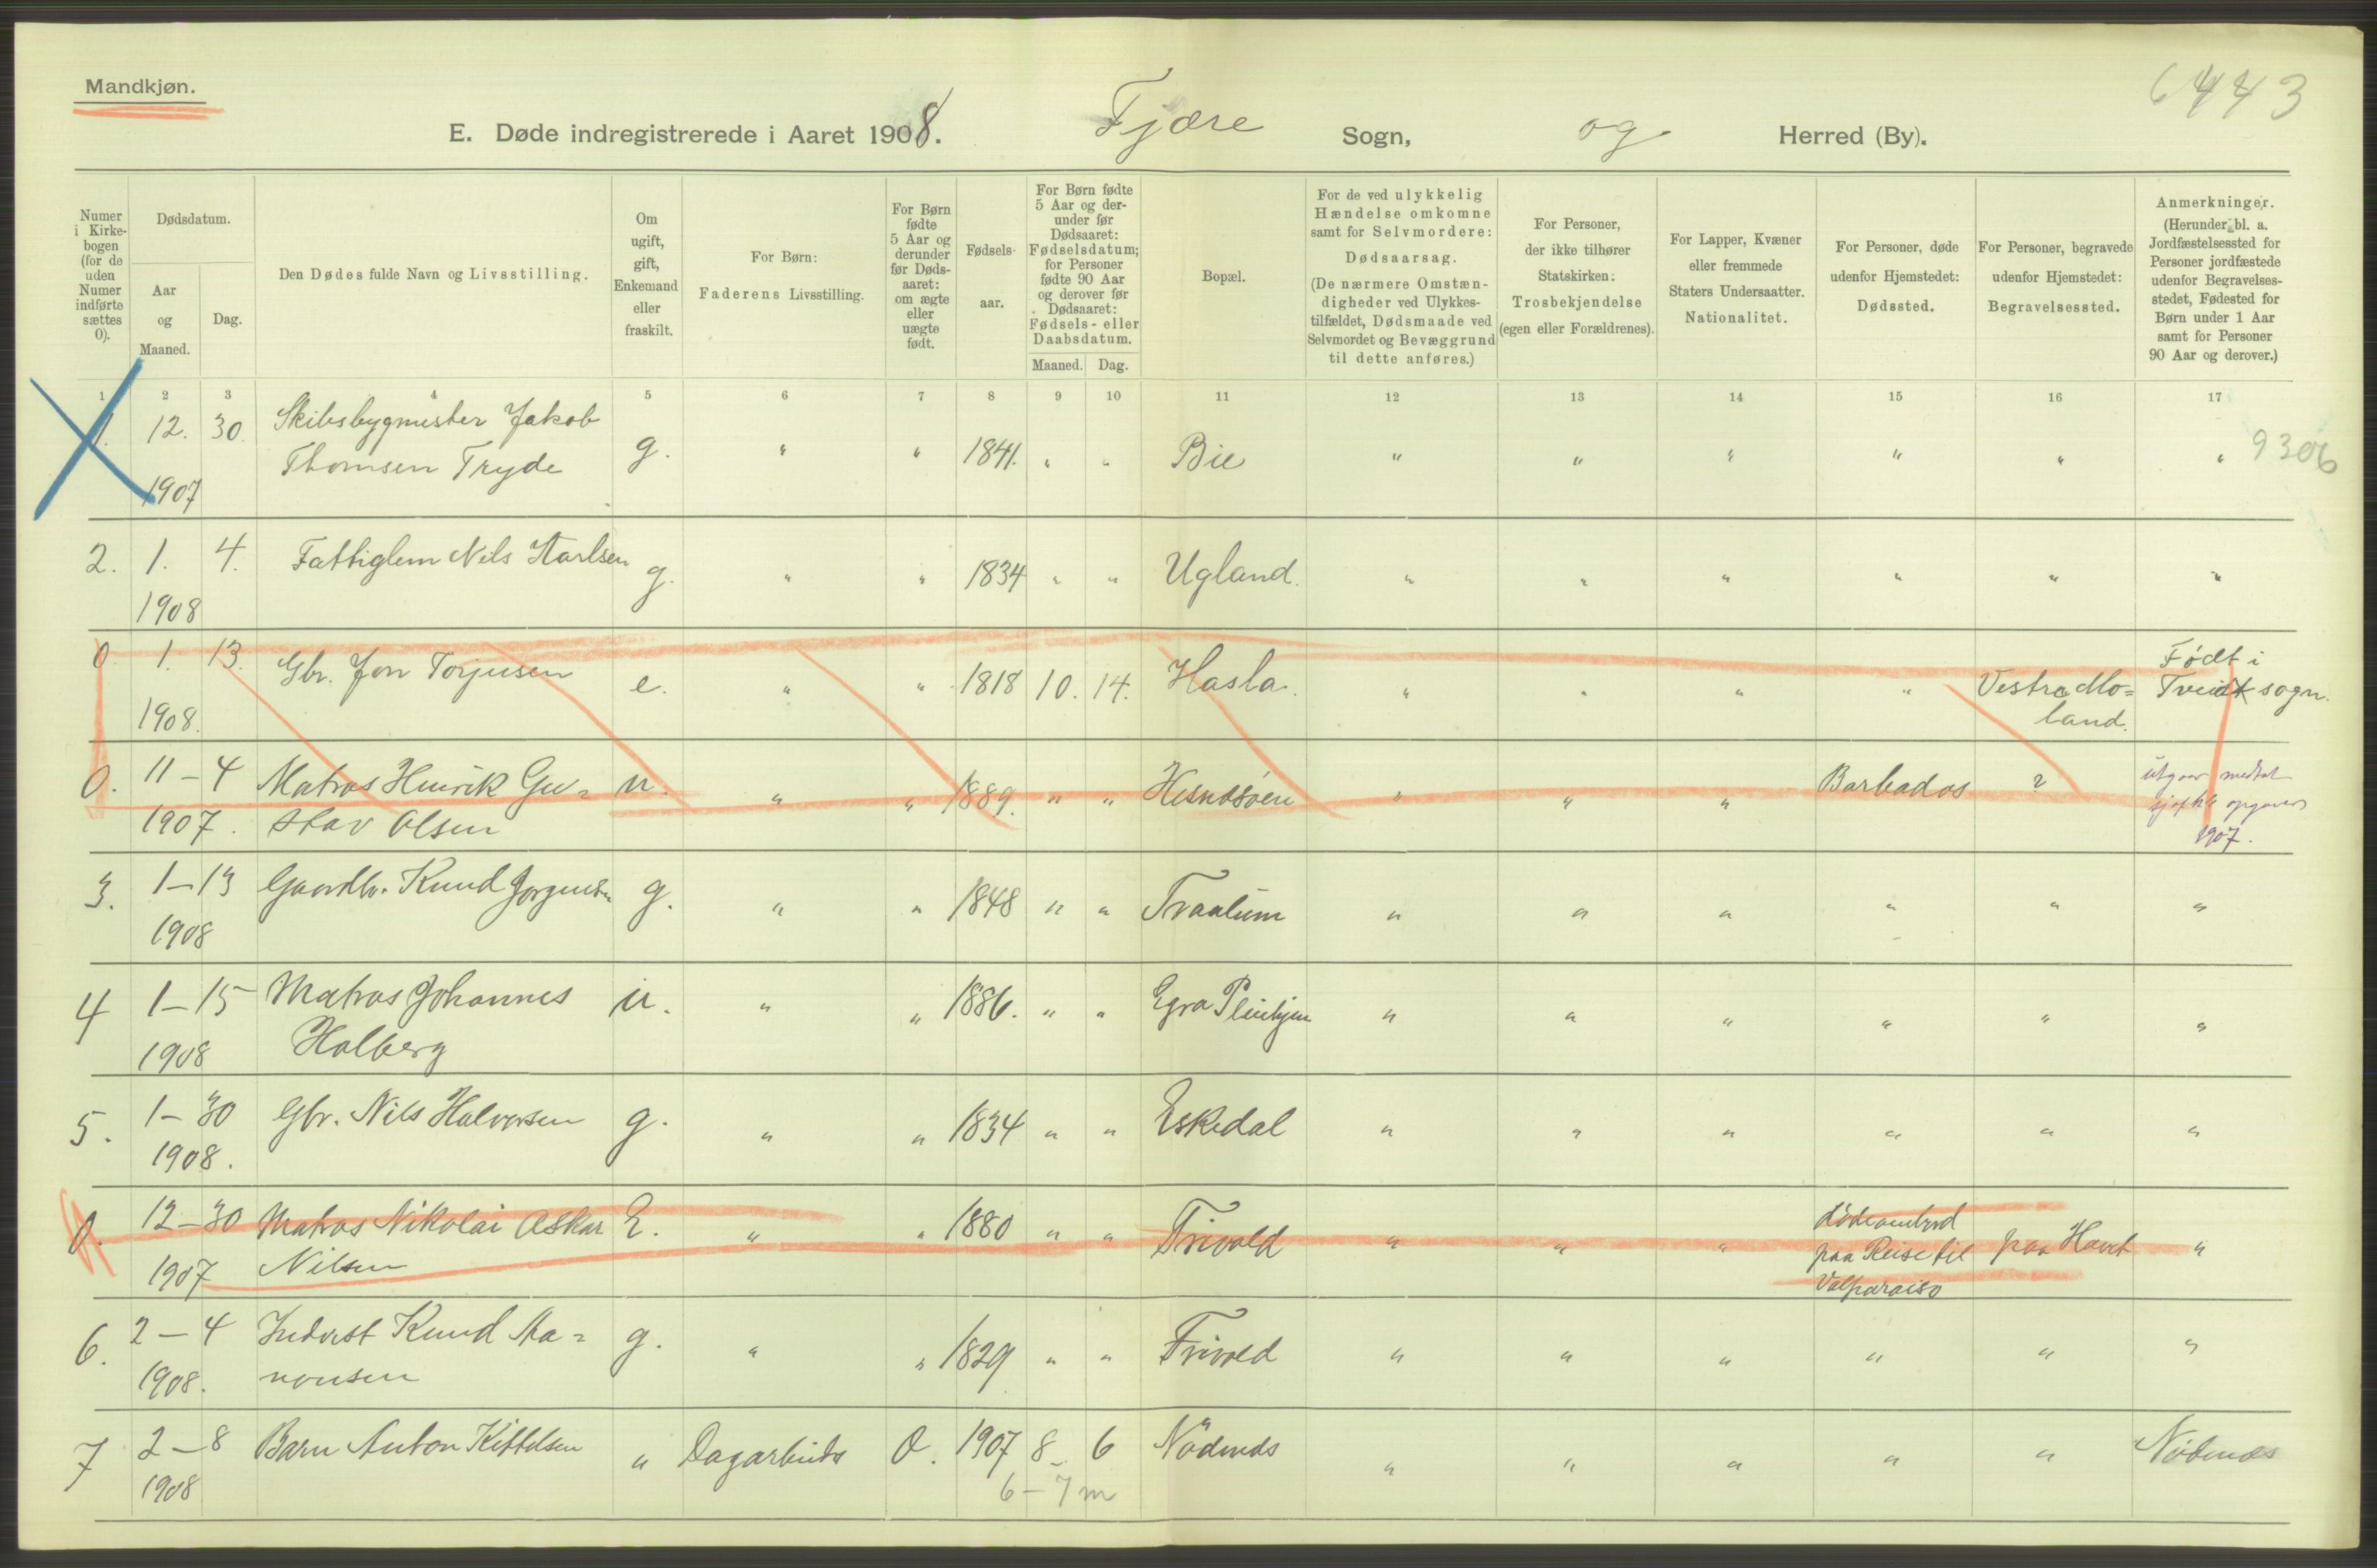 6443
Mandkjøn.
E. Døde indregistrerede i Aaret 1908. Fjære Sogn, og Herred (By).
Numer i Kirkebogen (for de uden Numer indførte sættes 0).
Dødsdatum.
Aar og Maaned.
Dag.
Den Dødes fulde Navn og Livsstilling.
Om ugift, gift, Enkemand eller fraskilt.
For Børn: Faderens Livsstilling.
For Børn fødte 5 Aar og derunder før Dødsaaret: om ægte eller uægte født.
Fødselsaar.
For Børn fødte 5 Aar og derunder før Dødsaaret: Fødselsdatum; for Personer fødte 90 Aar og derover før Dødsaaret: Fødsels- eller Daabsdatum.
Maaned. Dag.
Bopæl.
For de ved ulykkelig Hændelse omkomne samt for Selvmordere: Dødsaarsag. (De nærmere Omstændigheder ved Ulykkestilfældet, Dødsmaade ved Selvmordet og Bevæggrund til dette anføres.)
For Personer, der ikke tilhører Statskirken: Trosbekjendelse (egen eller Forældrenes).
For Lapper, Kvæner eller fremmede Staters Undersaatter. Nationalitet.
For Personer, døde udenfor Hjemstedet: Dødssted.
For Personer, begravede udenfor Hjemstedet: Begravelsessted.
Anmerkninger. (Herunder bl. a. Jordfæstelsessted for Personer jordfæstede udenfor Begravelsesstedet, Fødested for Børn under 1 Aar samt for Personer 90 Aar og derover.)
1 2 3 4 5 6 7 8 9 10 11 12 13 14 15 16 17
1. 12. 30 Skibsbygmester Jakob g. " " 1841. " " Bie " " " " " " 9306
1907 Thomsen Tryde
2. 1. 4. Fattiglem Nils Karlsen g. " " 1834 " " Ugland. " " " " " "
1908
0. 1. 13. Gbr. Jon Torjusen e. " " 1818 10. 14. Hasla. " " " " Vestre Mo= Født i
1908. land. Tveidt sogn.
0. 11-4 Matros Henrik Gu= u. " " 1889. " " Hesnesøen " " " Barbados ? utgaar medtat
1907. stav Olsen opgaver
1907.
3. 1-13 Gaardbr. Knud Jorgensen g. " " 1848 " " Traalum " " " " " "
1908
4 1-15 Matros Johannes u. " " 1886. " " Egra " " " " " "
1908 Holberg
5. 1-30 Gbr. Nils Halvorsen g. " " 1834 " " Eskedal " " " " " "
1908.
0. 12-30 Matros Nikolai Oskar E. " " 1880 " " Frivold " " " døde ombord
1907 Nilsen paa Reise til paa Havet "
Valparaiso
6. 2-4 Inderst Knud Aa= g. " " 1829 " " Frivold " " " " " "
1908. nonsen
7 2-8 Barn Anton Kittelsen " Dagarbeider O. 1907 8- 6 Nødenes " " " " " Nødenes
1908 6-7 m